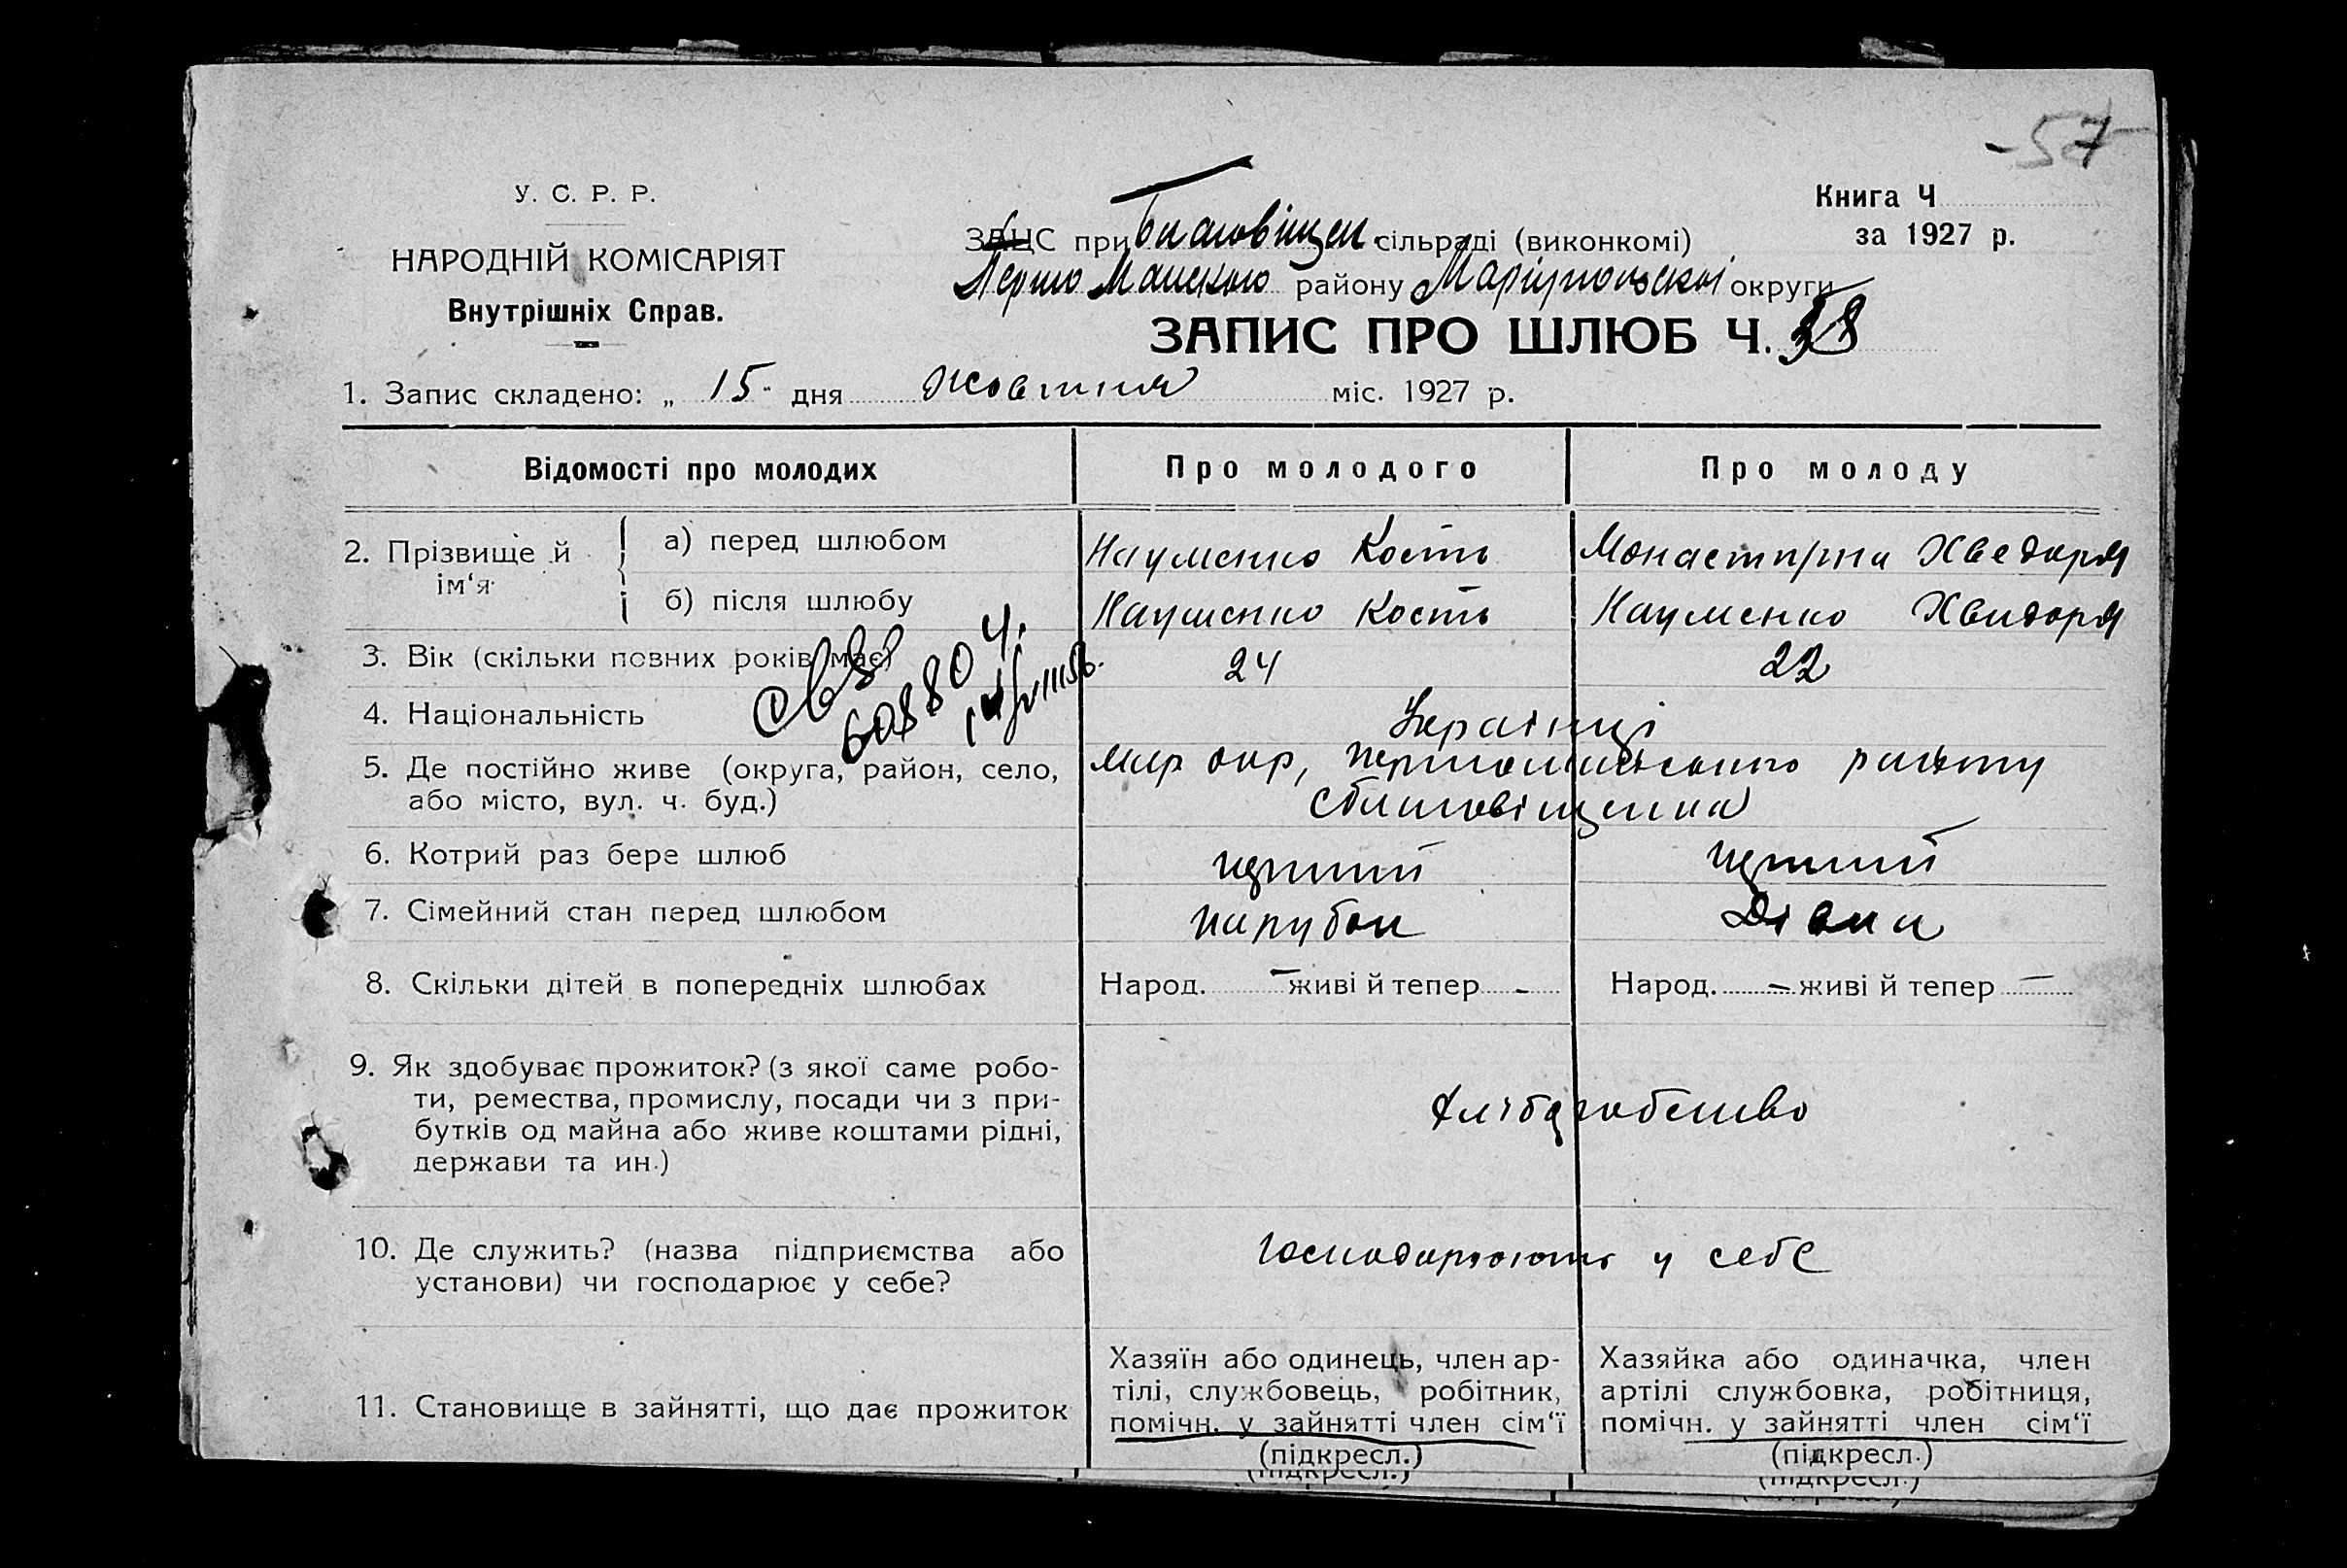 -57-
У. С. Р. Р.
НАРОДНІЙ КОМІСАРІЯТ
Внутрішніх Справ.
Книга Ч
за 1927 р.
ЗАЦС при Благовіщен. сільраді (виконкомі)
Першо Майського району Маріупольської округи
ЗАПИС ПРО ШЛЮБ Ч. 38
1. Запис складено: „ 15 " дня жовтня міс. 1927 р.
Відомості про молодих Про молодого Про молоду
2. Прізвище й ім‘я
а) перед шлюбом Науменко Кость Монастирна Хведоря
б) після шлюбу Науменко Кость Науменко Хвидоря
3. Вік (скільки повних років має) 24 22
60880
4. Національність Українці
5. Де постійно живе (округа, район, село, Мар окр, Першомайського району
або місто, вул. ч. буд.) с Благовіщенка
6. Котрий раз бере шлюб перший перший
7. Сімейний стан перед шлюбом парубок Дівка
8. Скільки дітей в попередніх шлюбах Народ. — живі й тепер - Народ. - живі й тепер —
9. Як здобуває прожиток? (з якої саме робо-
ти, ремества, промислу, посади чи з при-
бутків од майна або живе коштами рідні,
держави та ин.)
Хліборобство
10. Де служить? (назва підприємства або
установи) чи господарює у себе?
Господарюють у себе
11. Становище в зайнятті, що дає прожиток
Хазяїн або одинець, член ар-
тілі, службовець, робітник,
помічн. у зайнятті член сім‘ї
(підкресл.)
Хазяйка або одиначка, член
артілі службовка, робітниця,
помічн. у зайнятті член сім‘ї
(підкресл.)
(підкресл.)
(підкресл.)